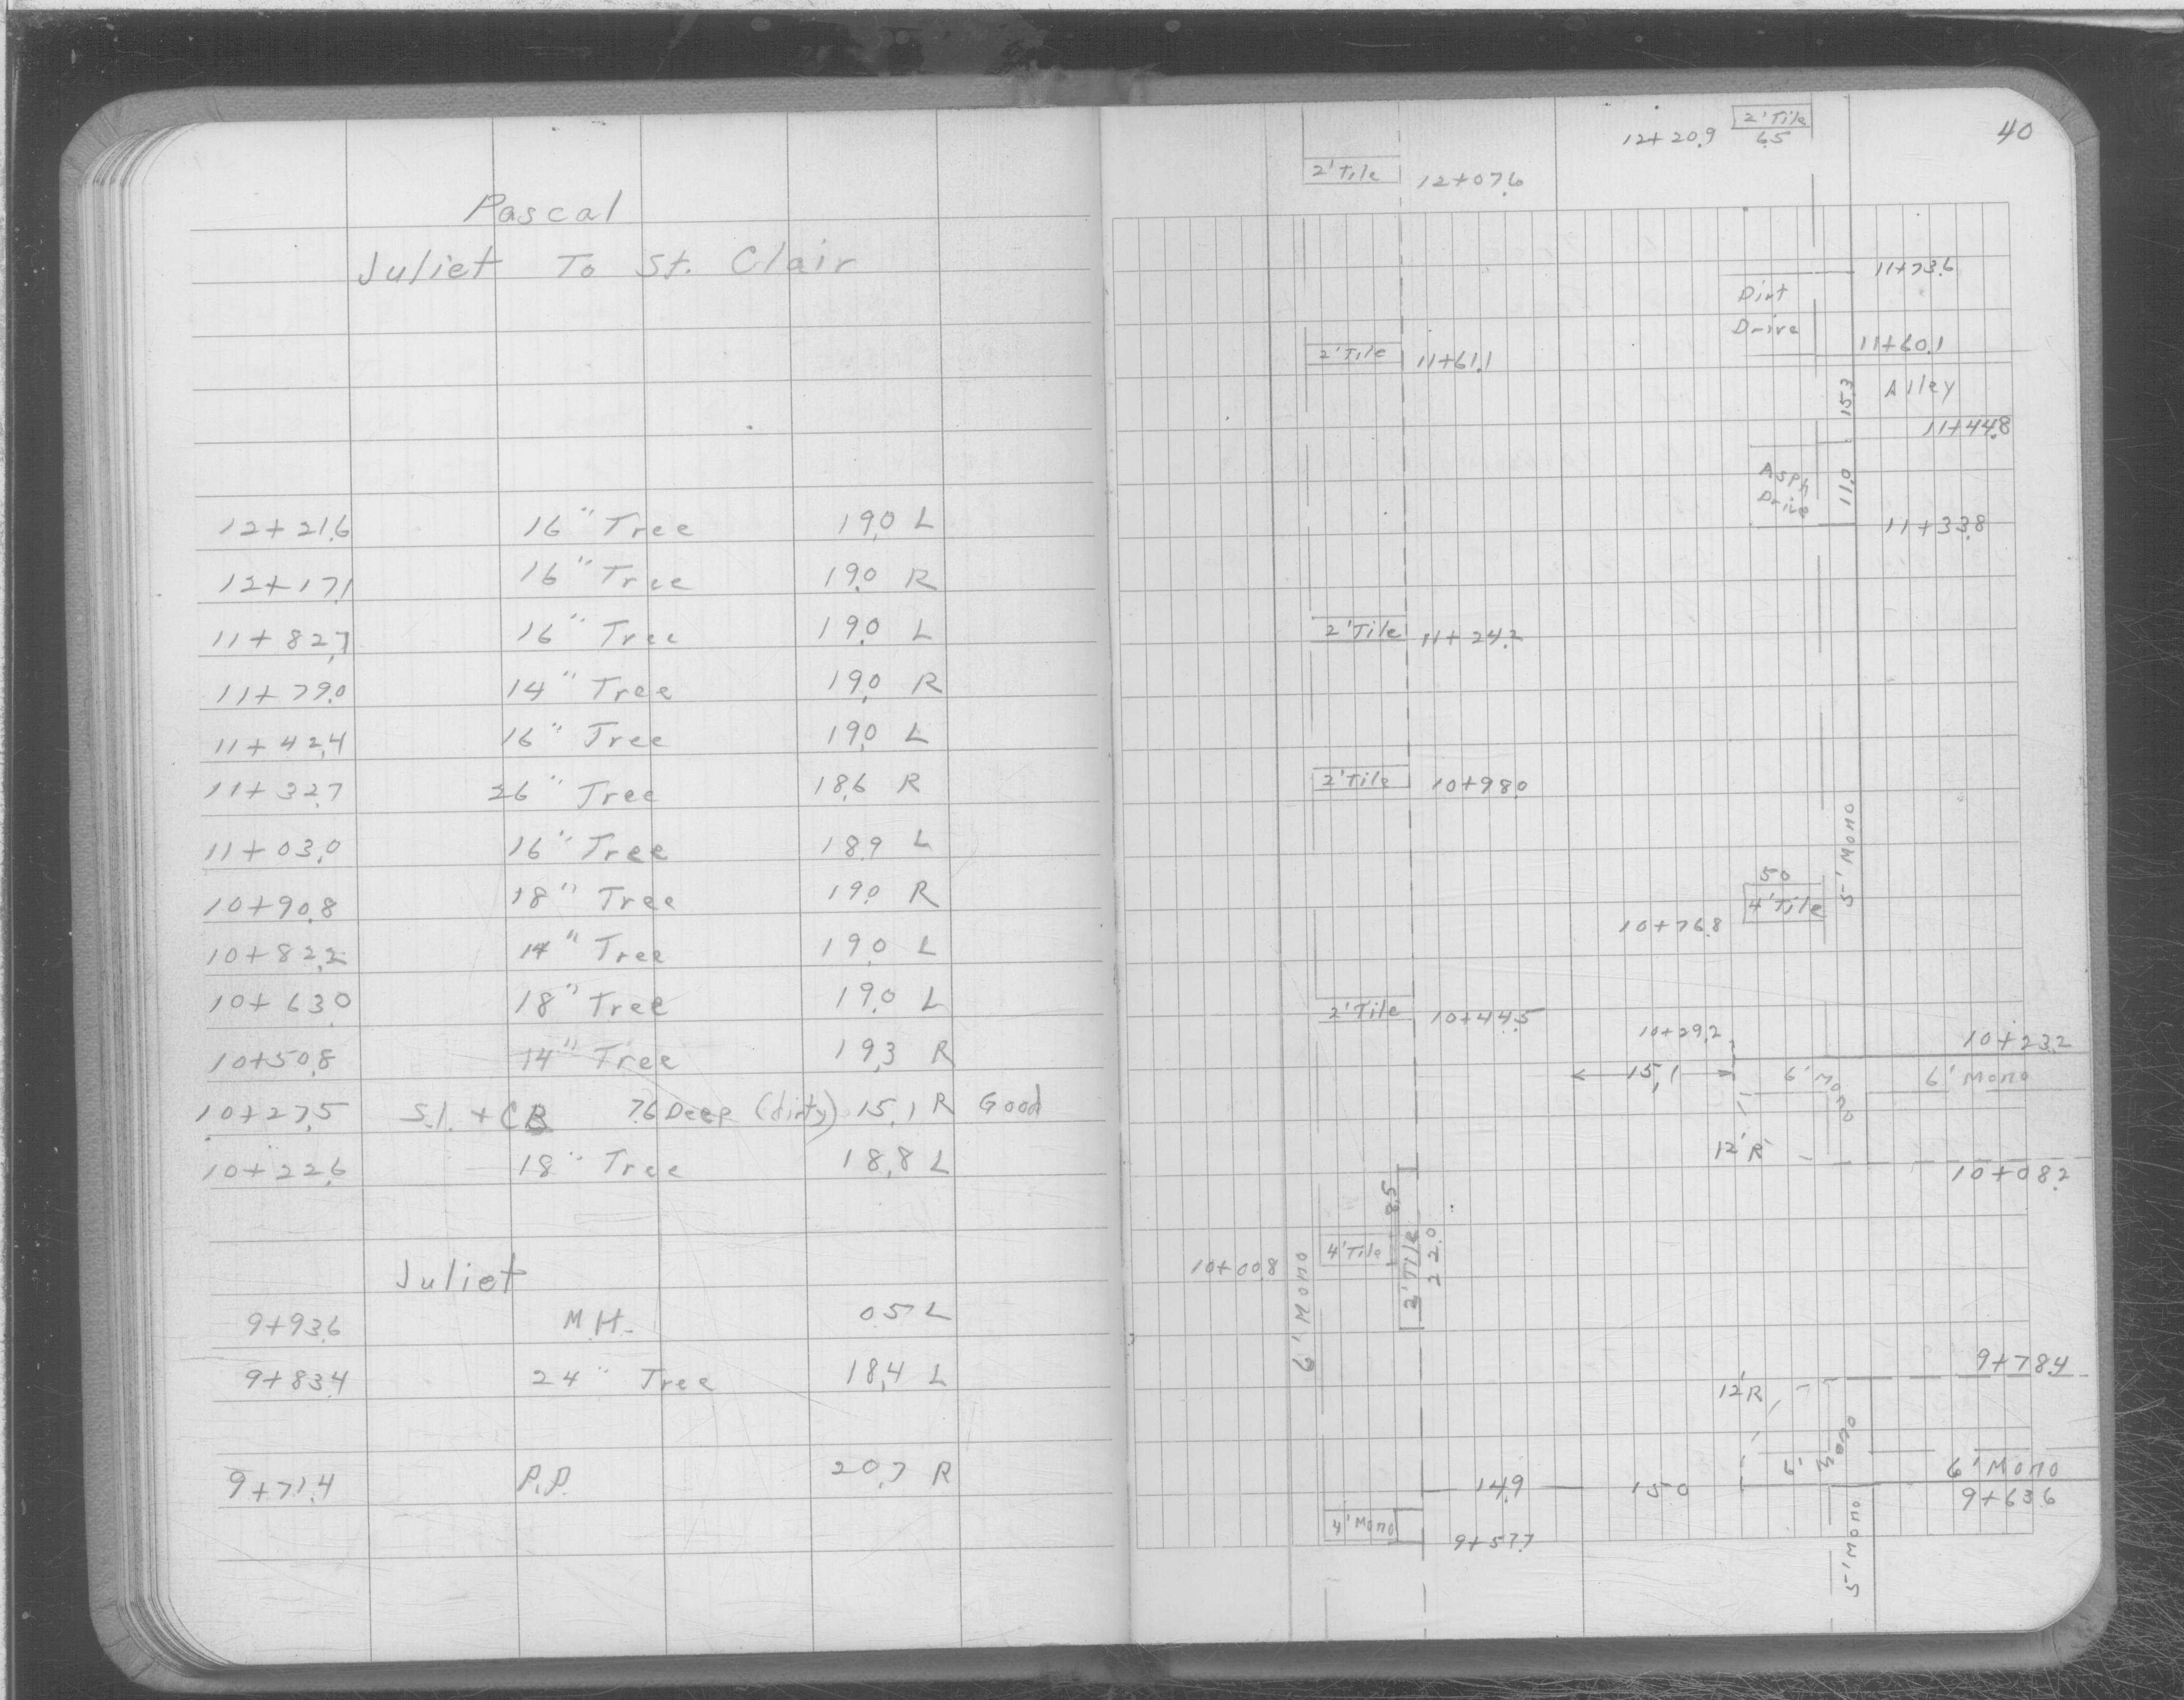 Pascal
Juliet To St. Clair
12+21.6 16" Tree 19.0 L
12+17.1 16" Tree 19.0 R
11+82.7 16" Tree 19.0 L
11+79.0 14" Tree 19.0 R
11+42.4 16" Tree 19.0 L
11+32.7 26" Tree 18.6 R
11+03.0 16" Tree 18.9 L
10+90.8 18" Tree 19.0 R
10+82.2 14" Tree 19.0 L
10+63.0 18" Tree 19.0 L
10+50.8 14" Tree 19.3 R
10+27.5 S.I. + CB 7.6 Deep (dirty) 15.1 R Good
10+22.6 18" Tree 18.8 L
Juliet
9+93.6 M.H. 0.5 L
9+83.4 24" Tree 18.4 L
9+71.4 P.P. 20.7 R
40
12+20.9 2' Tile
6.5
2' Tile 12+07.6
11+73.6
Dirt
Drive
11+60.1
2' Tile 11+61.1
15.3 Alley
11+44.8
Asph
Drive
11.0
11+33.8
2' Tile 11+24.2
2' Tile 10+98.0
5' Mono
5.0
4' Tile
10+76.8
2' Tile 10+44.5
10+29.2
10+23.2
15.1
6' Mono
6' Mono
12' R
10+08.2
8.5
4' Tile
2' Tile
22.0
10+00.8
6' Mono
9+78.4
12' R
6' Mono
6' Mono
14.9 15.0
9+63.6
4' Mono
9+57.7
5' Mono